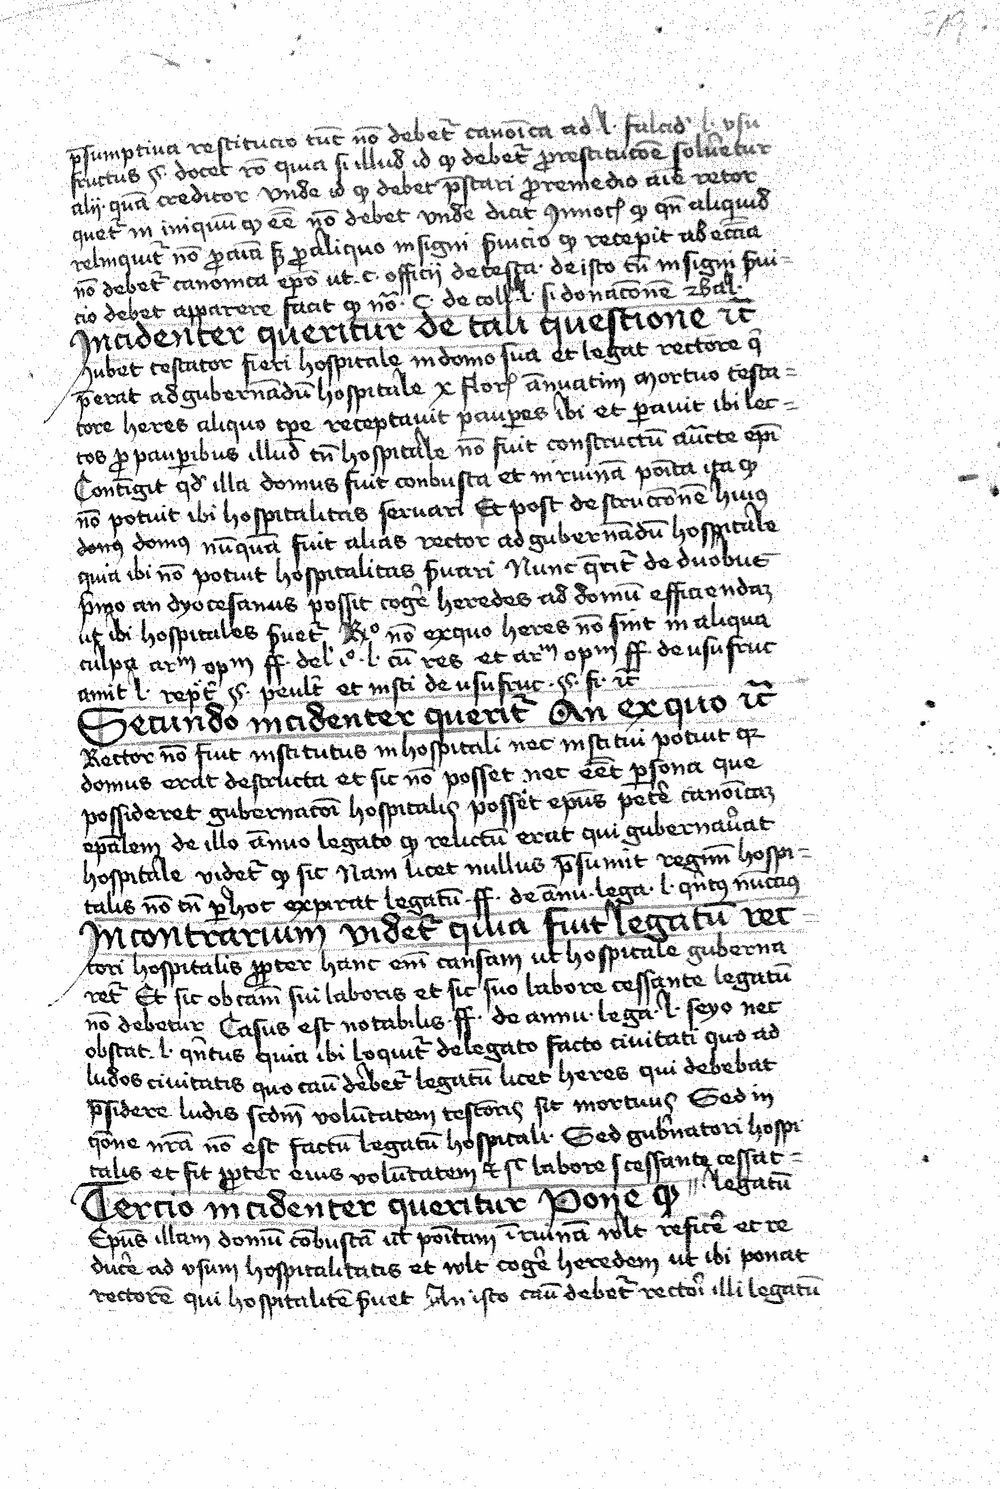 p̄sumptiua restitucio tūc nō debet᷑ canoīca ad l. falcid᷑ l. vsu
fructus §. docet rō quia si illud id qđ debet᷑ ꝓrestitucōe solūetur
alii quā creditor vnde id qđ debet p̄stari ꝓremedio aīe retor
quet᷑ in iniquū qđ eē nō debet vnde dicit Innoc̄ qđ qn̄ aliquid
relinquit᷑ nō ꝓ cūā ꝑ aliquo insigni s̄uicio qđ recepit ab eccīa
nō debet᷑ canonica epō ut. c. officii de testa. de isto tn̄ insigni s̄ui=
cio debet apparere facit qđ nō. C. de coll. l. si donacōnem
Incidenter queritur de tali questione ic̄
Iubet testator fieri hospitale in domo sua et legat rectore q̄
ꝑerat ad gubernādū hospitale x flor̄ ānuatim Mortuo testa=
tore heres aliquo tp̄e receptauit pauꝑes ibi et ꝑauit ibi lec=
tos ꝓ pauꝑibus illud tn̄ hospitale nō fuit constructū auc̄te epī
Contīgit qđ illa domus fuit conbusta et in ruinā posita ita qđ
nō potuit ibi hospitalitas seruari Et post destrucōnē huiꝰ
donꝰ domꝰ nūquā fuit alias rector ad gubernādū hospitale
quia ibi nō potuit hospitalitas s̄uari Nunc q̄rit᷑ de duobus
p̄mo an dyocesanus possit cogē heredes ad domū efficiendaꝫ
ut ibi hospitales s̄uet᷑ Rͦ nō exquo heres nō sint in aliqua
culpa arᵐ opᵐ ff. de l. iͦ. l. cū res et arᵐ opᵐ ff. de usufruc
amit l. repet̄ §. penult̄ et insti de usufruc. §. fi. ic̄
Secundo incidenter querit᷑ An exquo ic̄
Rector nō fuit institutus in hospitali nec institui potuit qꝛ
domus erat destructa et sic nō posset nec eēt ꝑsona que
possideret gubernacōi hospitalis posset epūs petē canoīcaꝫ
epālem de illo ānuo legato qđ relictū erat qui gubernauāt
hospitale videt᷑ qđ sic Nam licet nullus p̄sumit regimē hospi=
talis nō tn̄ ꝑ hoc expirat legatū. ff. de ānu. lega. l. qn̄tꝰ nūcciꝰ
In contrarium videt᷑ quia fuit legatū rec=
tori hospitalis ꝓpter hanc enī causam ut hospitale guberna
ret᷑ Et sic ob cām sui laboris et sic suo labore cessante legatū
nō debetur Casus est notabilis. ff. de annu. lega. l. seyo nec
obstat. l. qn̄tus quia ibi loquit᷑ de legato facto ciuitati quo ad
ludos ciuitatis quo caū debet᷑ legatū licet heres qui debebat
p̄sidere ludis scdm̄ volūtatem testōris sit mortuus Sed in
qōne nrā nō est factū legatū hospitali. Sed gub̄natori hospi
talis et fit ꝓpter eius volūtatem labore cessante cessat=
legatū
Tercio incidenter queritur Pone qđ
Epūs illam domū cōbustā ut̄ poītam ī ruinā wlt reficē et re
ducē ad vsum hospitalitatis et wlt cogē heredem ut ibi ponat
rectorē qui hospitalitē s̄uet An isto caū debet᷑ rectoī illi legatū